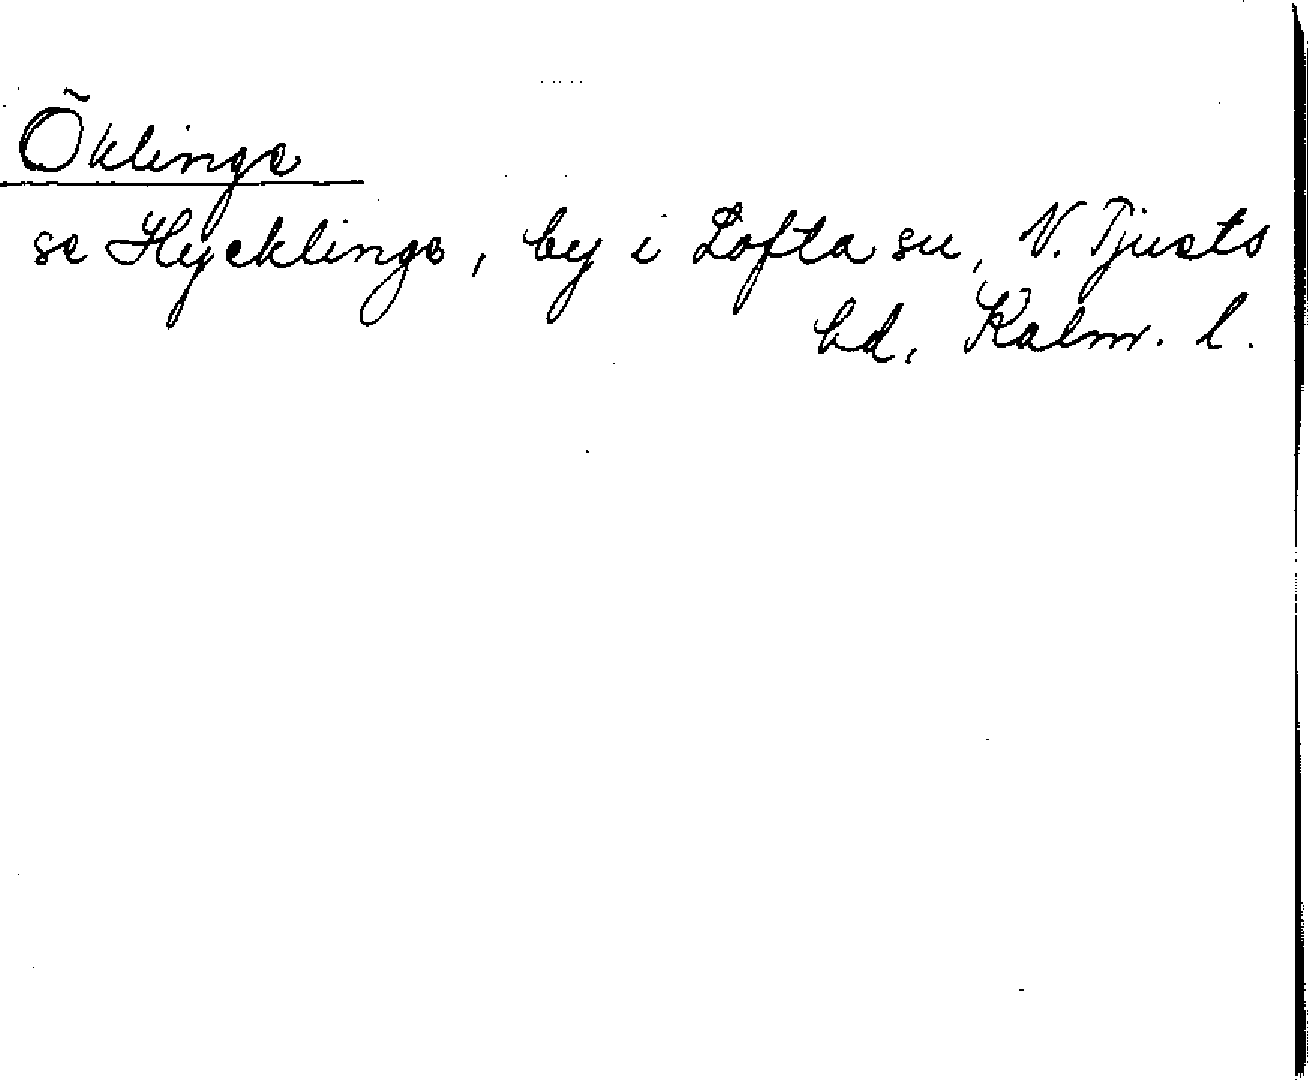 Öklinge
se Hycklinge, by i Lofta sn, N. Tjusts
hd, Kalm. l.